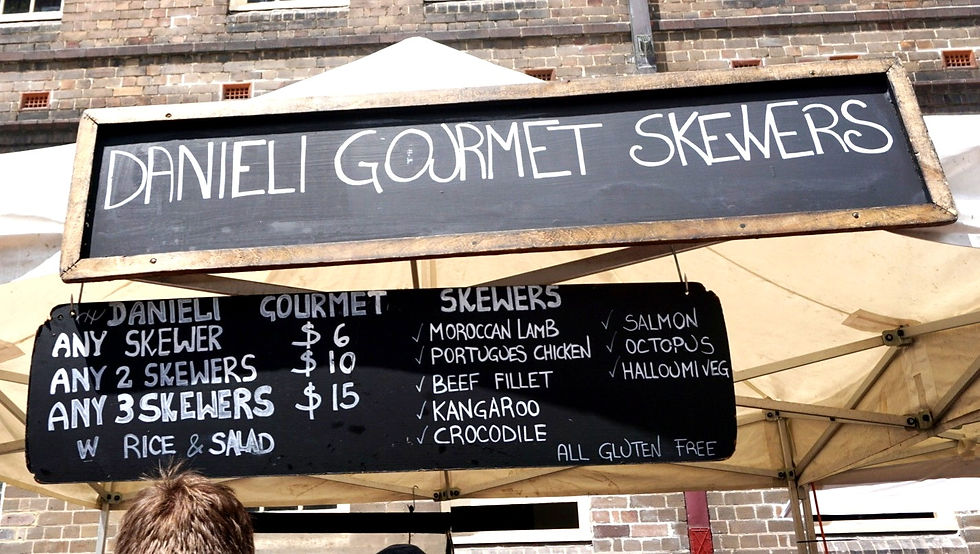 DANIELI GOURMET SKEWERS
DANIELI GOURMET SKEWERS
ANY SKEWER $6
ANY 2 SKEWERS $10
ANY 3 SKEWERS $15
W RICE & SALAD
MOROCCAN LAMB
PORTUGUES CHICKEN
BEEF FILLET
KANGAROO
CROCODILE
SALMON
OCTOPUS
HALLOUMI VEG
ALL GLUTEN FREE